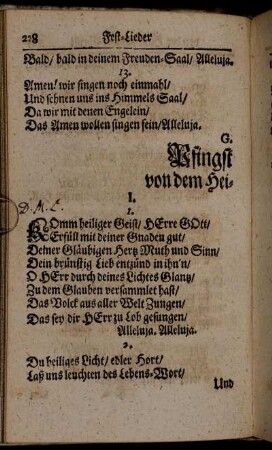 228 Fest-Lieder
Bald/ bald in deinem Freuden-Saal/ Alleluja.
13.
Amen/ wir singen noch einmahl/
Und sehnen uns ins Himmels Saal/
Da wir mit denen Engelein/
Das Amen wollen singen fein/ Alleluja.
G.
Pfingst
von dem Hei-
I.
D. M. L.
1.
KOmm heiliger Geist/ HErre GOtt/
Erfüll mit deiner Gnaden gut/
Deiner Gläubigen Hertz Muth und Sinn/
Dein brünstig Lieb entzünd in ihn'n/
O HErr durch deines Lichtes Glantz/
Zu dem Glauben versammlet hast/
Das Volck aus aller Welt Zungen/
Das sey dir HErr zu Lob gesungen/
Alleluja. Alleluja.
2.
Du heiliges Licht/ edler Hort/
Laß uns leuchten des Lebens-Wort/
Und